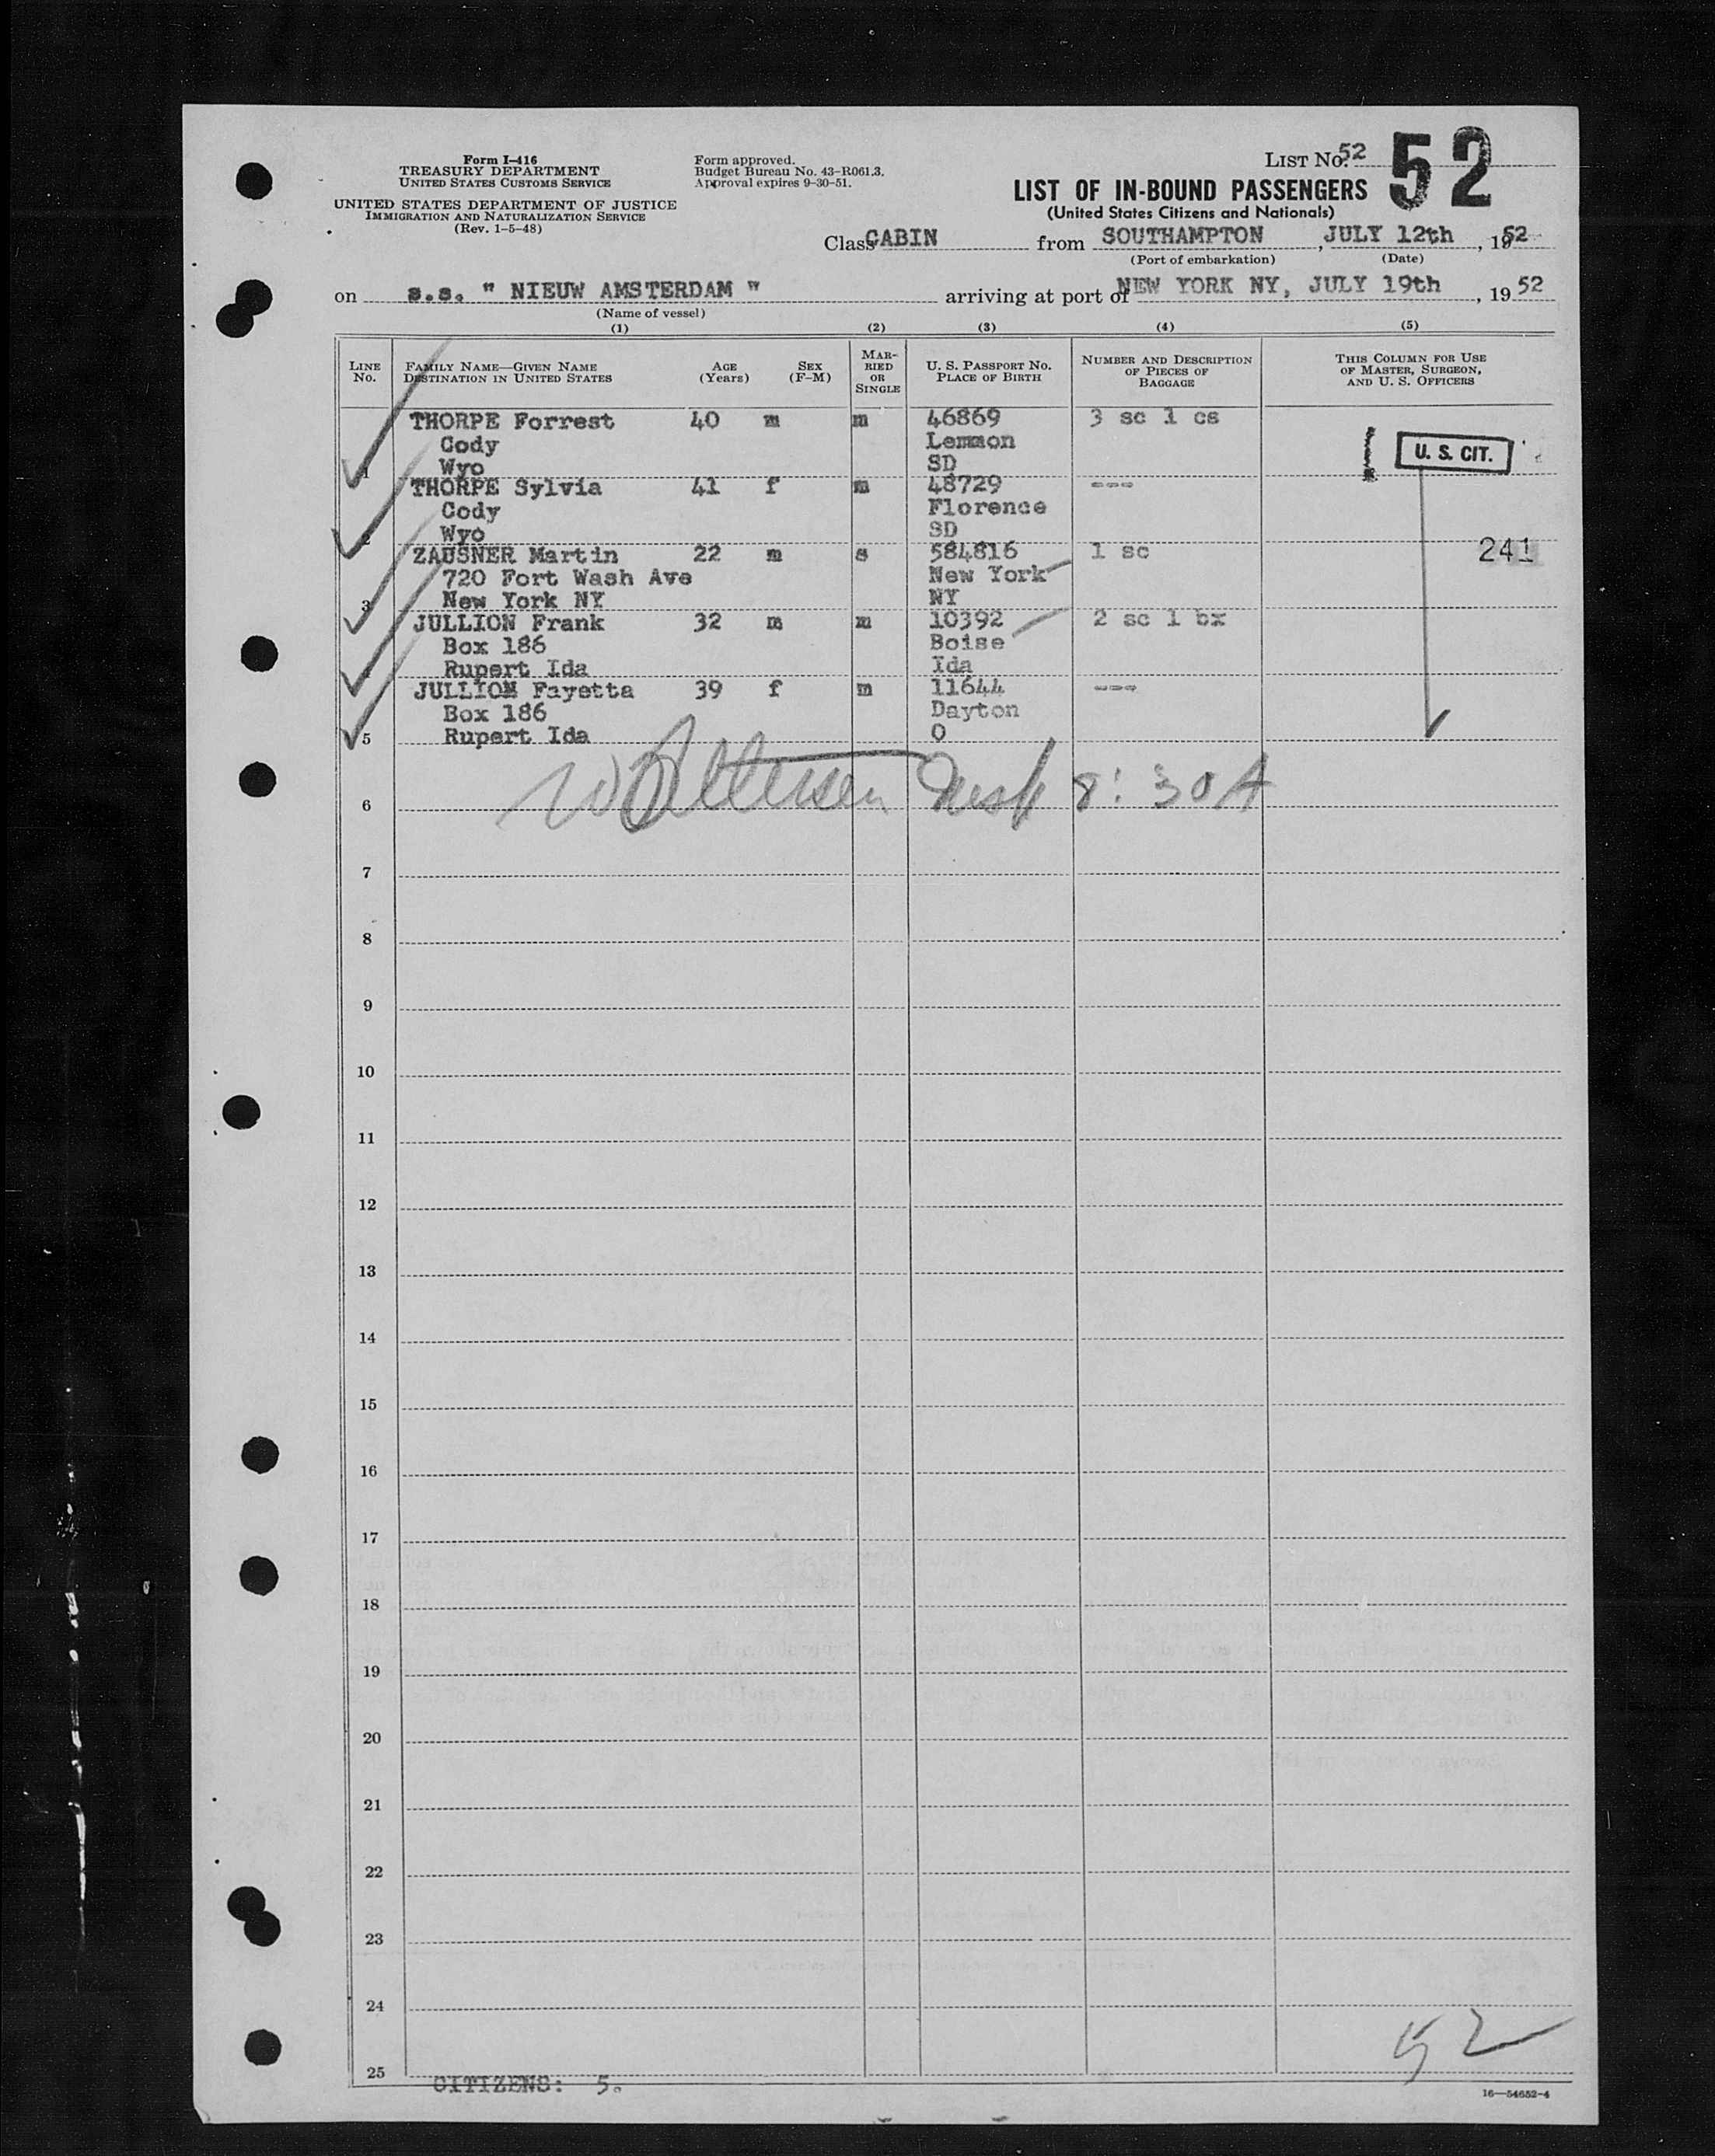 Form I-416
TREASURY DEPARTMENT
UNITED STATES CUSTOMS SERVICE
UNITED STATES DEPARTMENT OF JUSTICE
IMMIGRATION AND NATURALIZATION SERVICE
(Rev. 1-5-48)
Form approved.
Budget Bureau No. 43-R061.3.
Approval expires 9-30-51.
LIST No. 52 52
LIST OF IN-BOUND PASSENGERS
(United States Citizens and Nationals)
Class CABIN from SOUTHAMPTON , JULY 12th , 1952
(Port of embarkation) (Date)
on s.s. " NIEUW AMSTERDAM " arriving at port of NEW YORK NY, JULY 19th , 19 52
(Name of vessel)
(1) (2) (3) (4) (5)
LINE No. FAMILY NAME—GIVEN NAME DESTINATION IN UNITED STATES AGE (Years) SEX (F-M) MARRIED OR SINGLE U. S. PASSPORT No. PLACE OF BIRTH NUMBER AND DESCRIPTION OF PIECES OF BAGGAGE THIS COLUMN FOR USE OF MASTER, SURGEON, AND U. S. OFFICERS
THORPE Forrest 40 m m 46869 3 sc 1 cs
Cody Lemmon U. S. CIT.
1 Wyo SD
THORPE Sylvia 41 f m 48729 ---
Cody Florence
2 Wyo SD
ZAUSNER Martin 22 m s 584816 1 sc 241
720 Fort Wash Ave New York
3 New York NY NY
JULLION Frank 32 m m 10392 2 sc 1 bx
Box 186 Boise
4 Rupert Ida Ida
JULLION Fayetta 39 f m 11644 ---
Box 186 Dayton
5 Rupert Ida O
6 8:30A
7
8
9
10
11
12
13
14
15
16
17
18
19
20
21
22
23
24
52
25
CITIZENS: 5.
16—54652-4